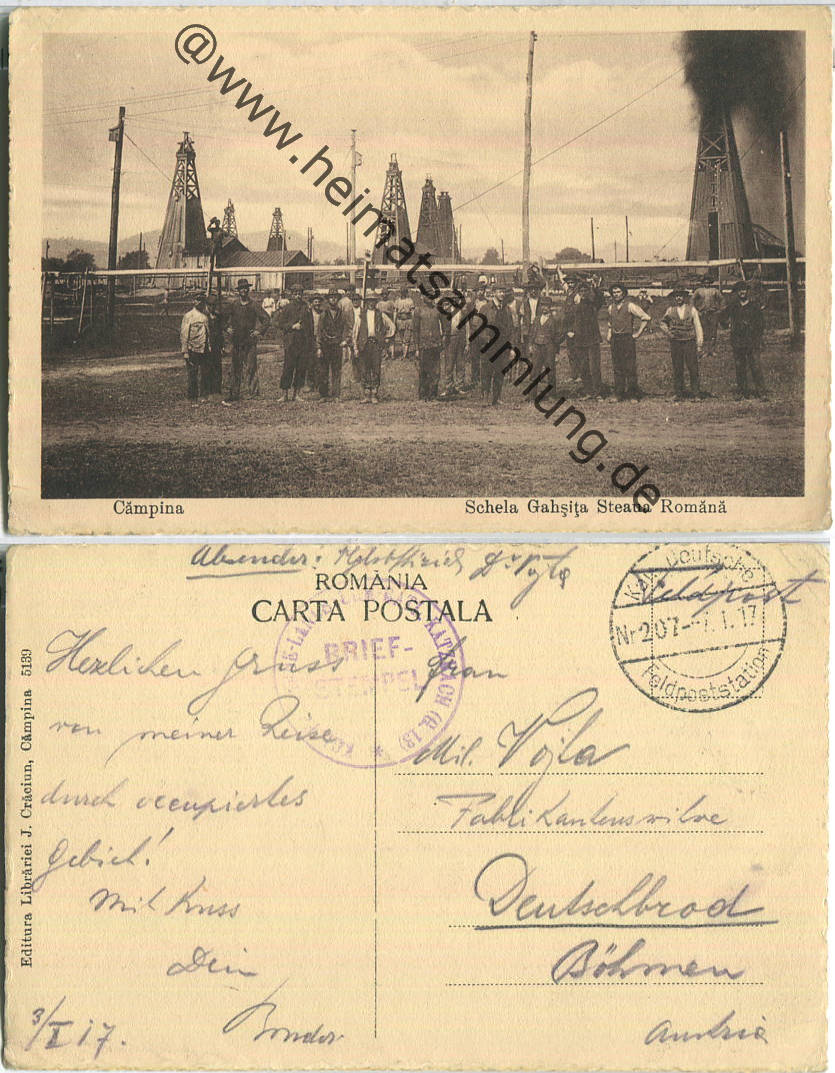 @www.heimatsammlung.de
Câmpina
Schela Gahşiţa Steaua Română
Absender: Dr Vojta
Feldpost
ROMÂNIA
CARTA POSTALA
Kais. Deutsche
Nr 207 - 7. 1. 17
Feldpoststation
KATZBACH (U. 13)
BRIEF-
STEMPEL
Herzlichen Gruss
von meiner Reise
durch occupiertes
Gebiet!
Mit Kuss
Dein
Bruder
3/I 17.
Frau
Mil. Vojta
Fabrikantenswitwe
Deutschbrod
Böhmen
Austria
Editura Librăriei J. Crăciun, Câmpina 5139